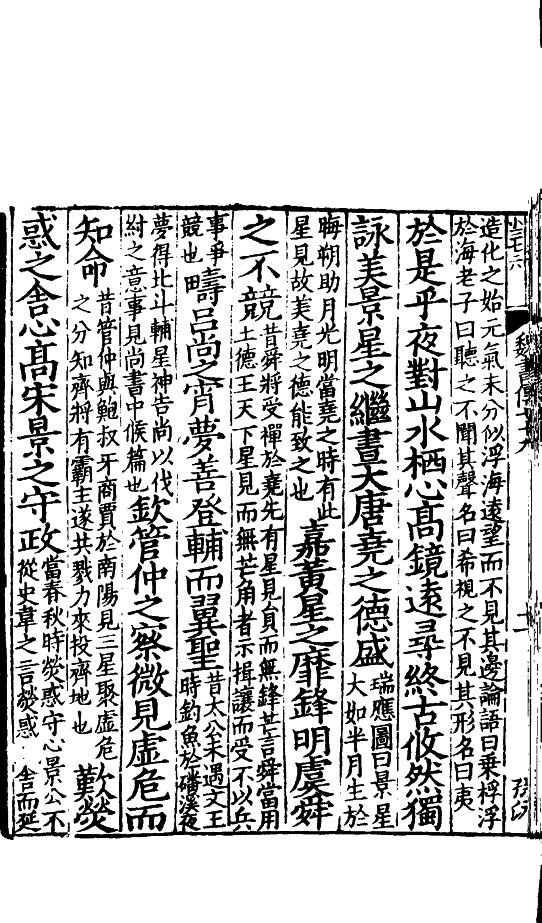 造化之始元氣未分似浮海遠望而不見其邊論語曰乘桴浮
於海老子曰聽之不聞其聲名曰希視之不見其形名曰夷
於是乎夜對山水栖心髙鏡遠尋終古攸然獨
詠美景星之繼晝大唐堯之德盛瑞應圖曰景星
大如半月生於
晦朔助月光明當堯之時有此
星見故美堯之德能致之也嘉黃星之靡鋒明虞舜
之不競昔舜將受禪於堯先有星見員而無鋒芒言舜當用
土德王天下星見而無芒角者示揖讓而受不以兵
事爭
競也疇呂尚之宵夢善登輔而翼聖昔太公未遇文王
時釣魚於磻溪夜
夢得北斗輔星神告尚以伐
紂之意事見尚書中候篇也欽管仲之察微見虛危而
知命昔管仲與鮑叔牙商賈於南陽見三星聚虛危
之分知齊將有霸主遂共戮力來投齊地也歎熒
惑之舍心髙宋景之守政當春秋時熒惑守心景公不
從史韋之言熒惑舍而延